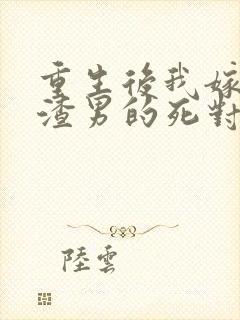 重生後我嫁
渣男的死對
陸雲